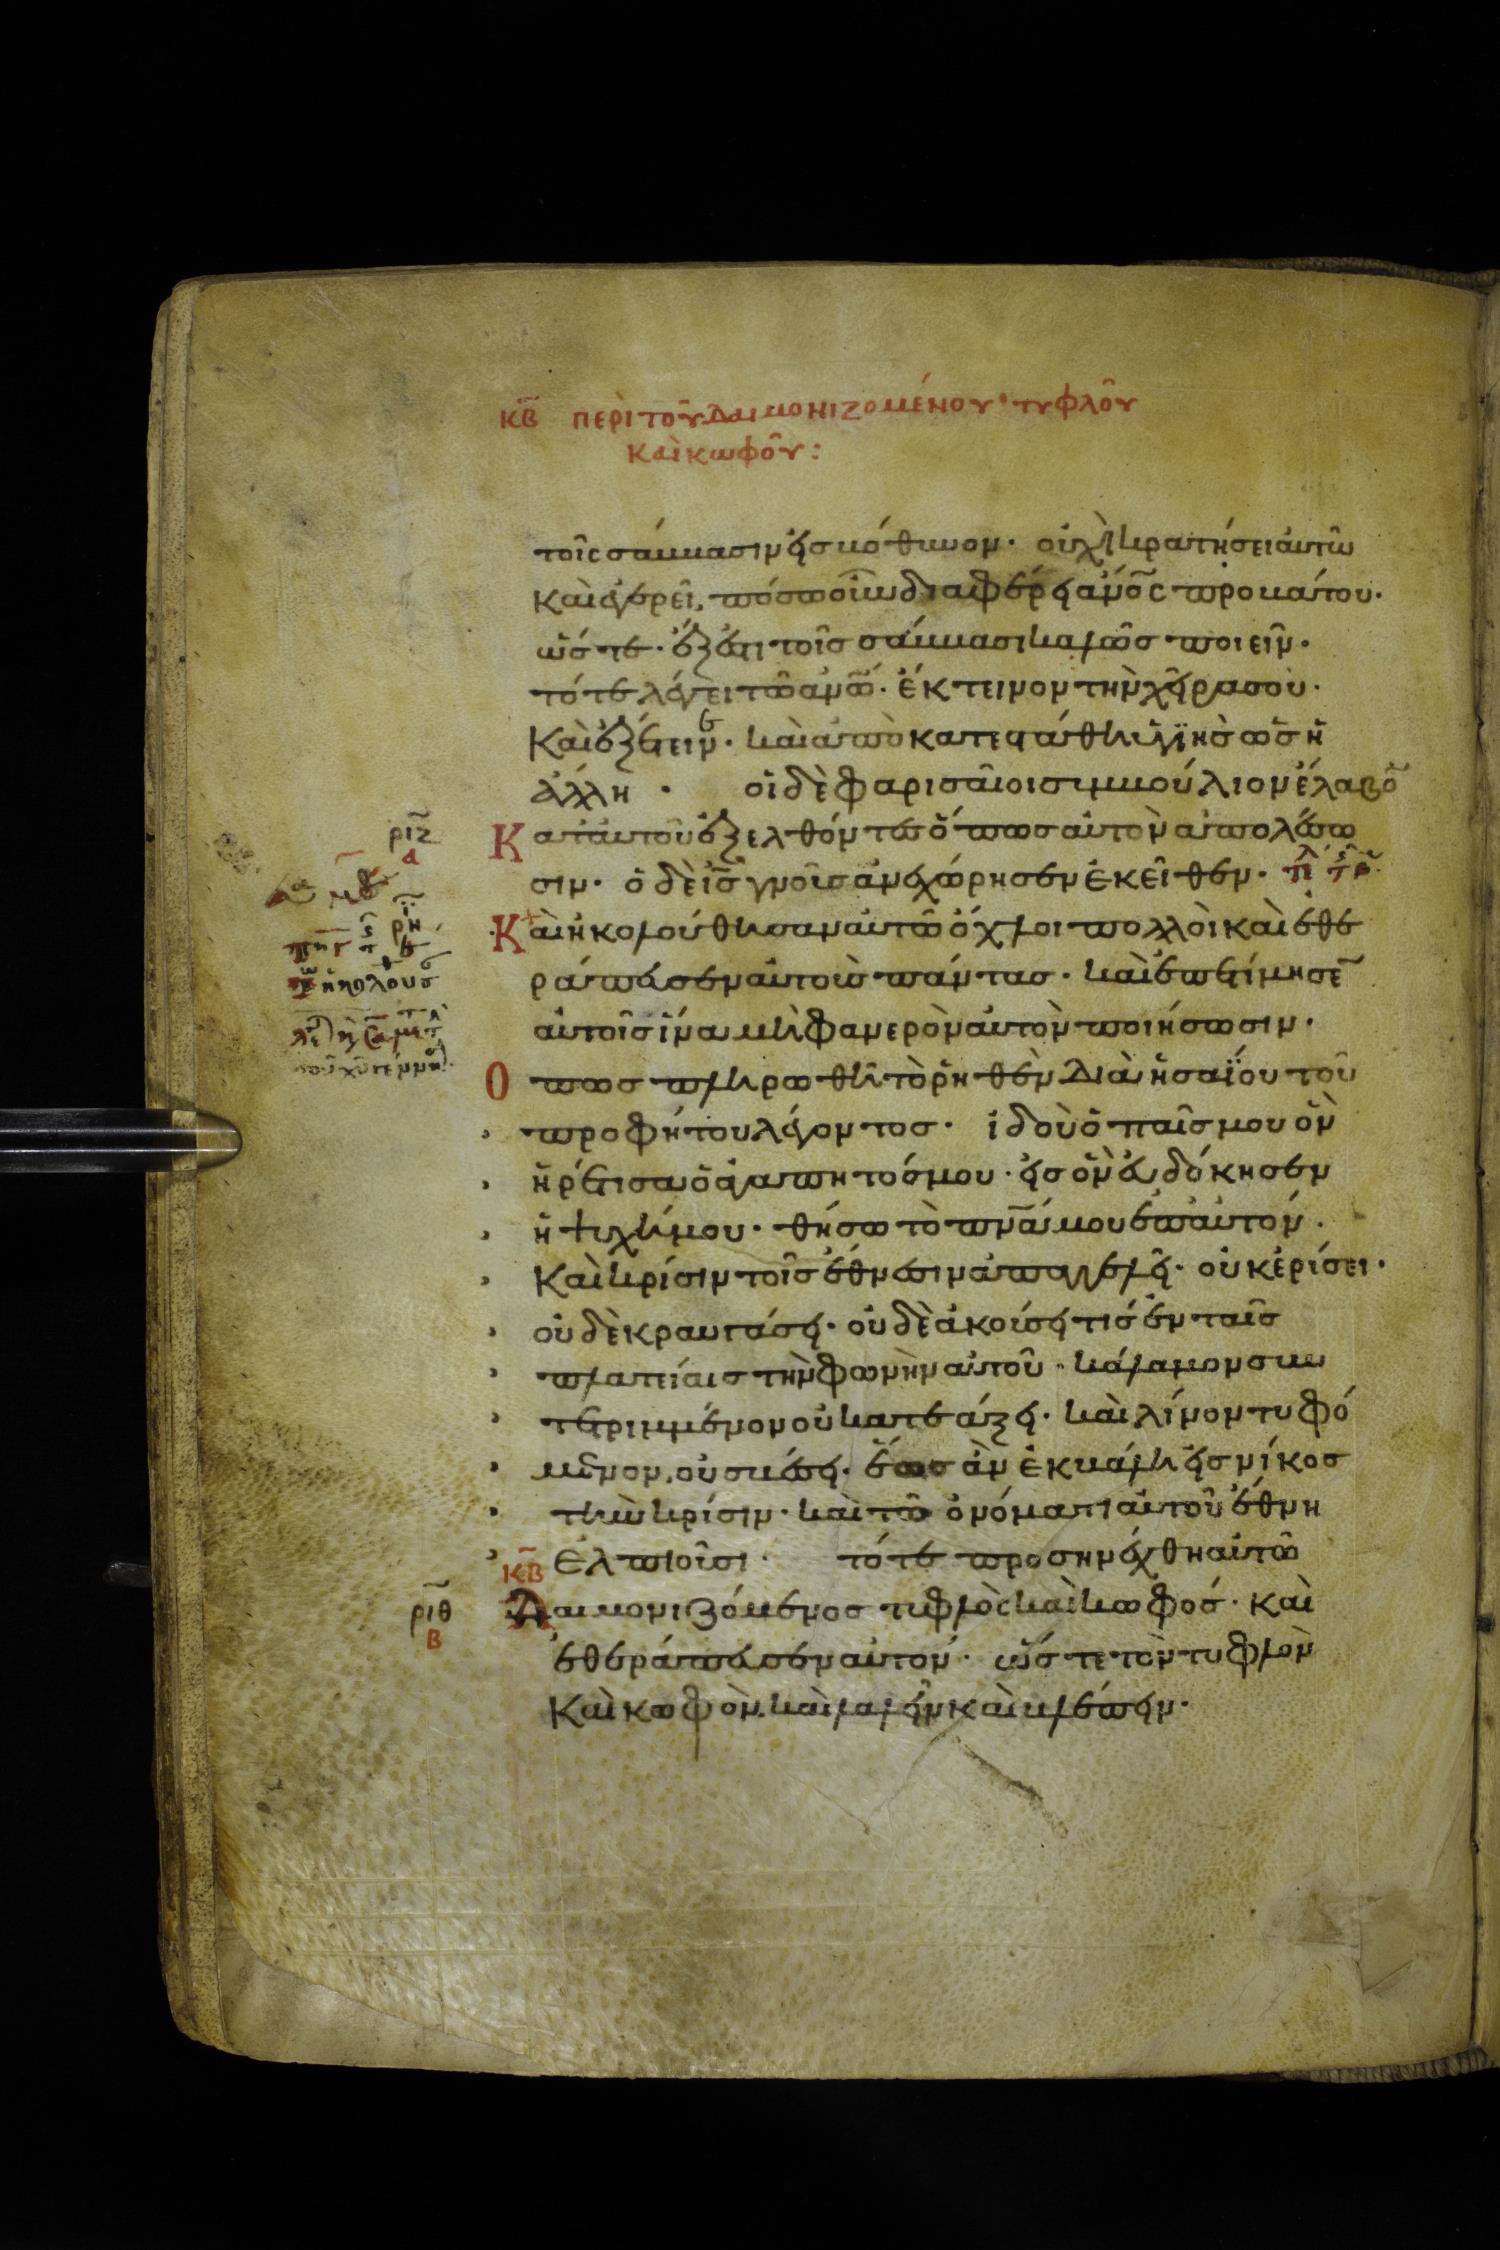 κβ περὶ τοῦ δαιμονιζομένου τυφλοῦ
καὶ κωφοῦ:
τοῖς σάββασιν εἰς βόθυνον· οὐχὶ κρατήσει αὐτὸ
καὶ ἐγερεῖ, πόσω οὖν διαφέρει ἀν̅ο̅ς προβάτου·
ὥστε· ἔξεστι τοῖς σάββασι καλῶς ποιεῖν·
τότε λέγει τῶ ἀν̅ω̅· ἔκτεινον τὴν χεῖρα σου·
καὶ ἐξέτεινε· καὶ ἀποκατεστάθη ὑγιὴς ὡς ἡ
ἄλλη · οἱ δὲ φαρισαῖοι συμβούλιον ἔλαβο̅
ριζ
α
κατ αὐτοῦ ἐξελθόντες ὅπως αὐτὸν ἀπολέσω
σιν· ὁ δὲ ι̅ς̅ γνοὺς ἀνεχώρησεν ἐκεῖθεν·
ριη
καὶ ἠκολούθησαν αὐτῶ ὄχλοι πολλοὶ καὶ ἐθε
ράπευσεν αὐτοὺς πάντας· καὶ ἐπετίμησε̅
αὐτοῖς ἵνα μὴ φανερὸν αὐτὸν ποιήσωσιν·
Οπως πληρωθῆ τὸ ῥηθὲν διὰ ἡσαΐου τοῦ
προφήτου λέγοντος· ἰδοὺ ὁ παῖς μου ὃν
ἡρέτισα ὁ ἀγαπητός μου· εἰς ὃν εὐδόκησεν
ἡ ψυχή μου· θήσω τὸ π̅ν̅α̅ μου ἐπ αὐτόν·
καὶ κρίσιν τοῖς ἔθνεσιν ἀπαγγελεῖ· οὐκ ἐρίσει·
οὐδὲ κραυγάσει· οὐδὲ ἀκούσει τις ἐν ταῖς
πλατείαις τὴν φωνὴν αὐτοῦ· κάλαμον συν
τετριμμένον οὐ κατεάξει· καὶ λίνον τυφό
μενον, οὐ σβέσει· ἕως ἂν ἐκβάλη εἰς νίκος
τὴν κρίσιν· καὶ τῶ ὀνόματι αὐτοῦ ἔθνη
ἐλπιοῦσι· τότε προσηνέχθη αὐτῶ
κβ
ριθ
β
Δαιμονιζόμενος τυφλὸς καὶ κωφός· καὶ
ἐθεράπευσεν αὐτόν· ὥστε τὸν τυφλὸν
καὶ κωφὸν, καὶ λαλεῖν καὶ βλέπειν·